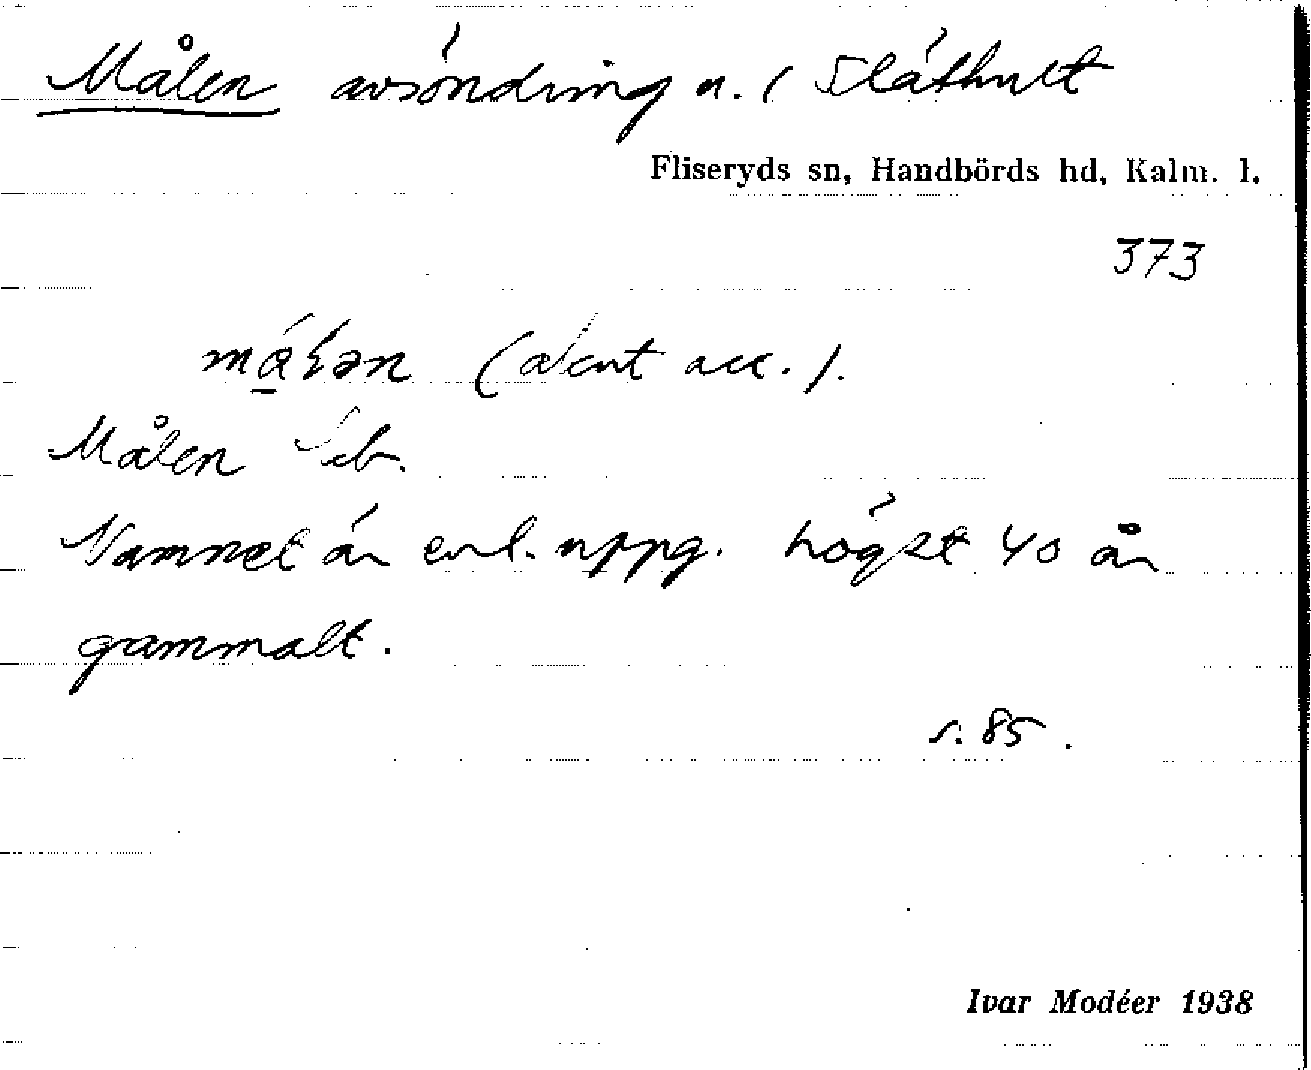 Målen avsöndring u. Släthult
Fliseryds sn, Handbörds hd, Kalm. l.
373
(akut acc.).
Målen Jeb.
Namnet är enl. uppg. högst 40 år
gammalt.
s. 85.
Ivar Modéer 1938